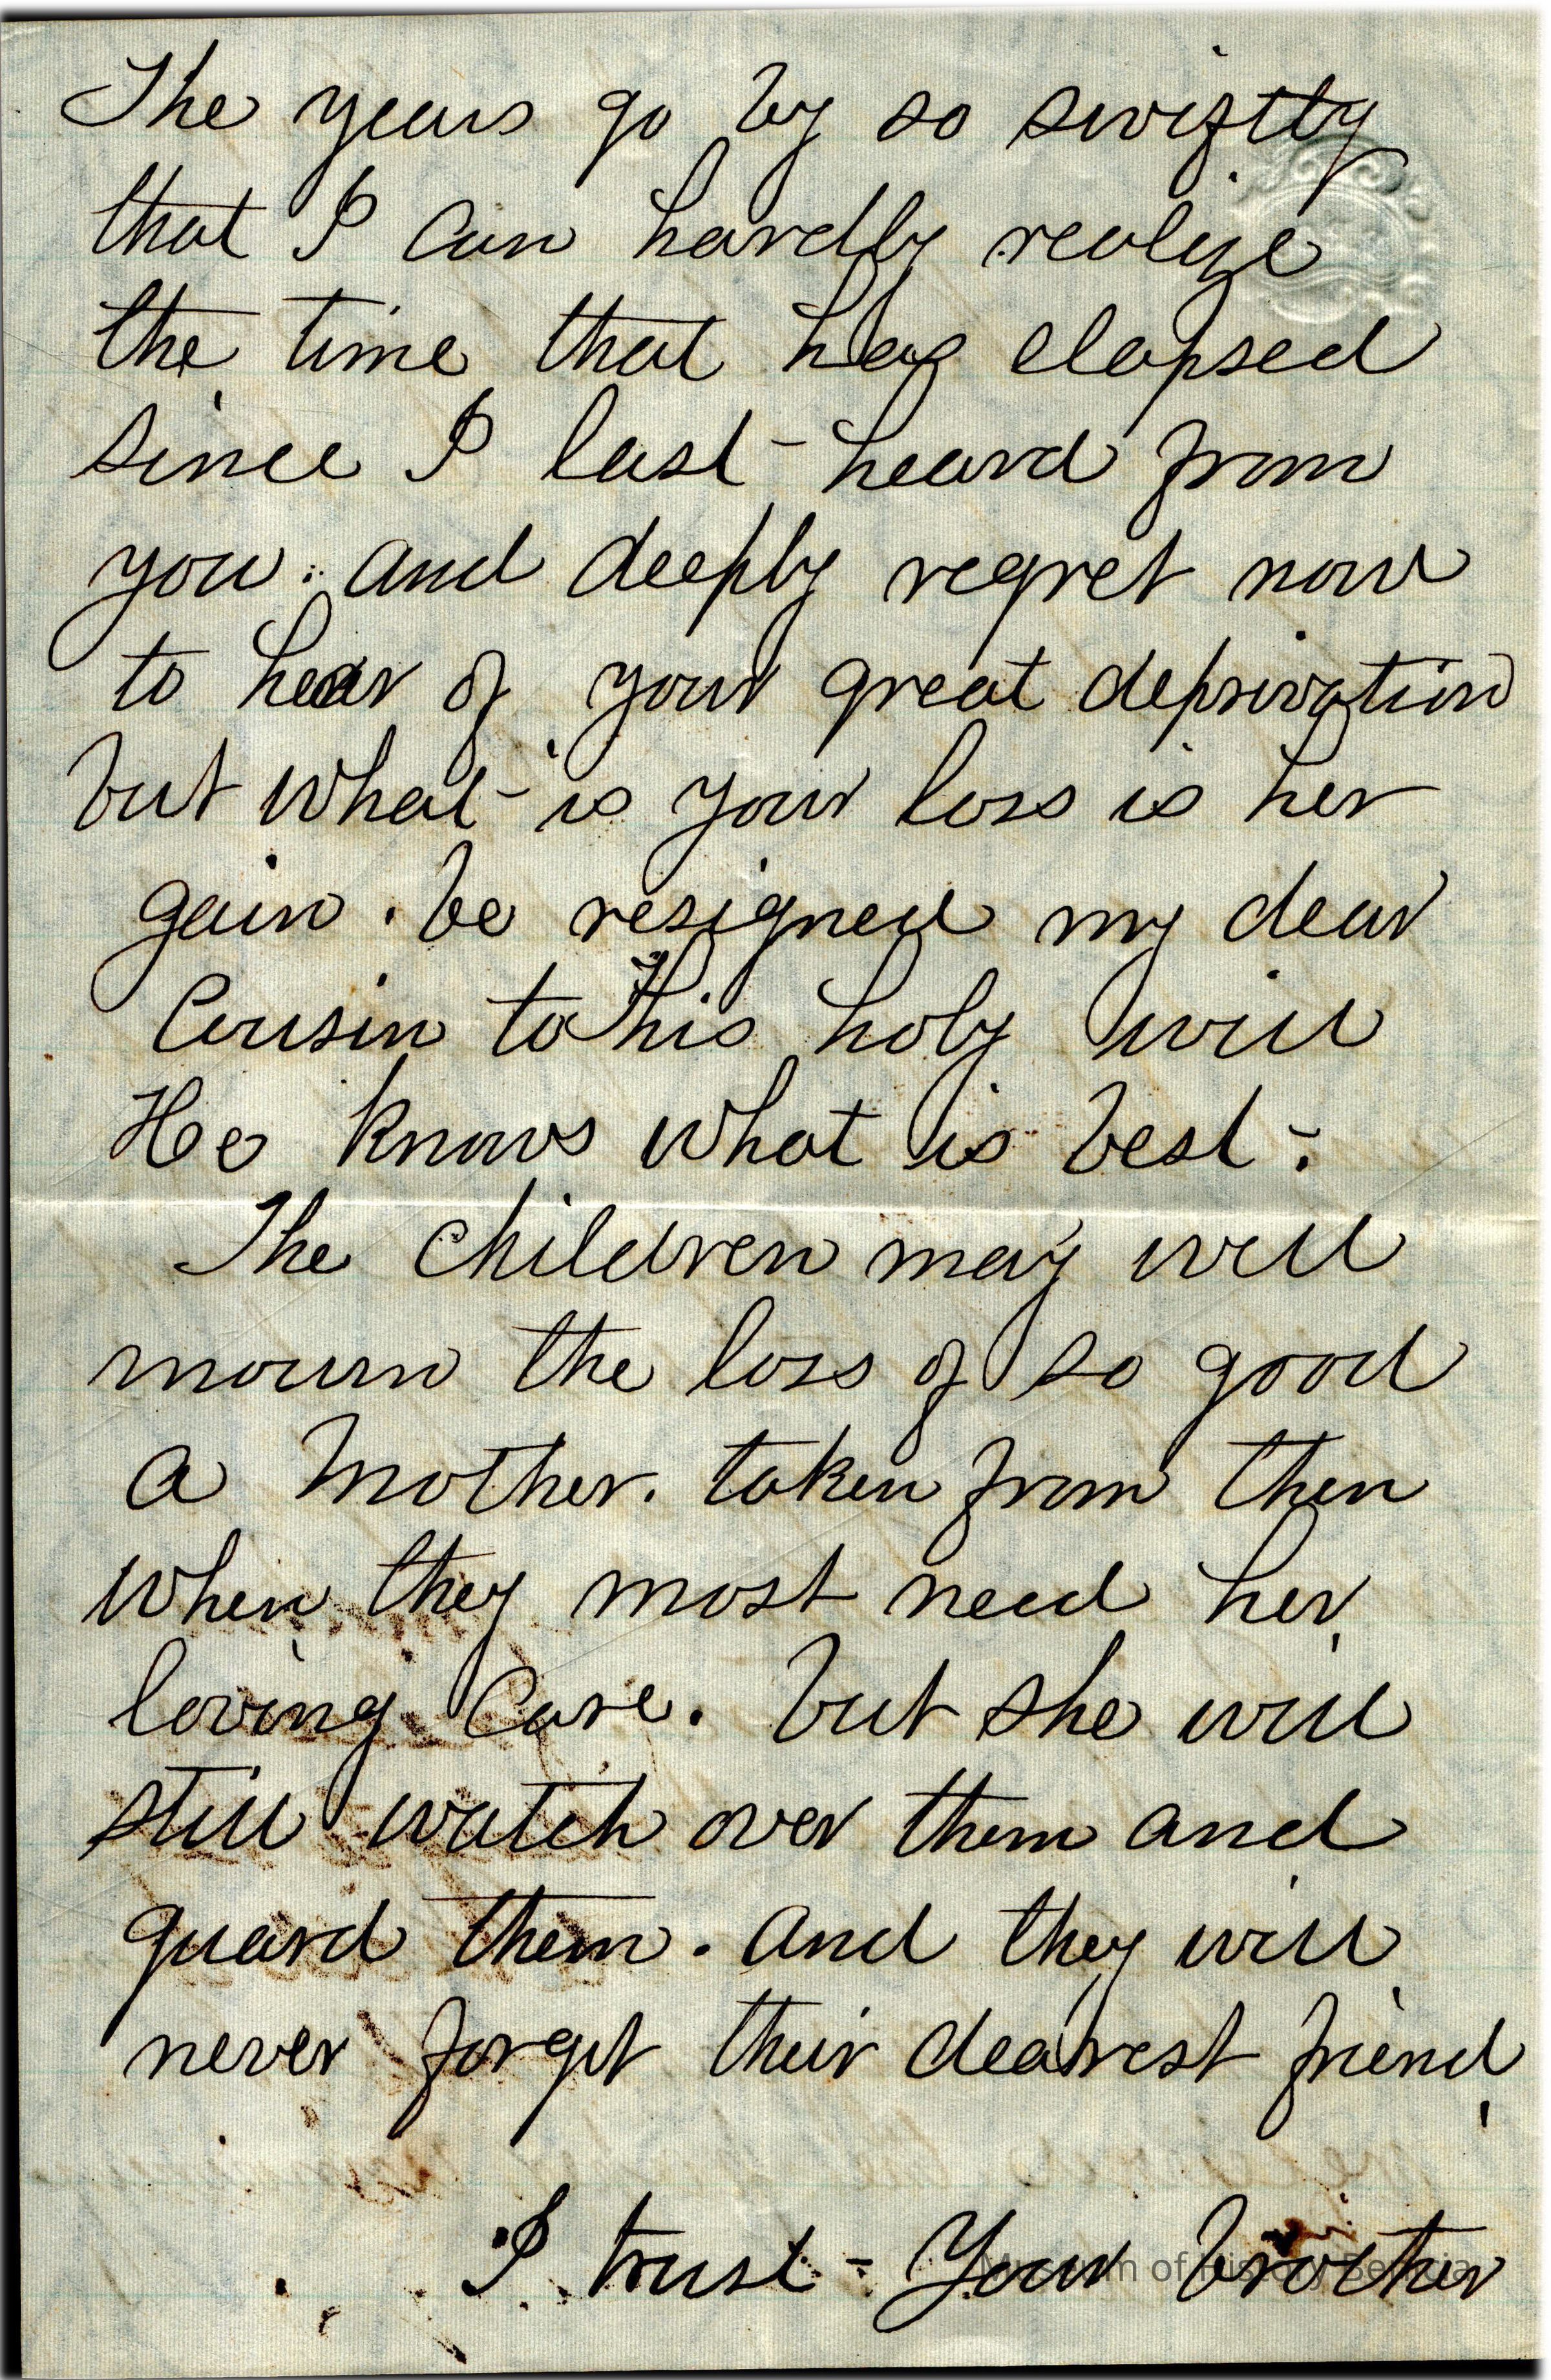 The years go by so swiftly
that I can hardly realize
the time that has elapsed
since I last heard from
you. and deeply regret now
to hear of your great deprivation
but what is your loss is her
gain. be resigned my dear
Cousin to His holy will
He knows what is best.
The children may well
mourn the loss of so good
a Mother. taken from then
when they most need her
loving care. but she will
still watch over them and
guard them. and they will
never forget their dearest friend
I trust - Your brother
Museum of History Benicia